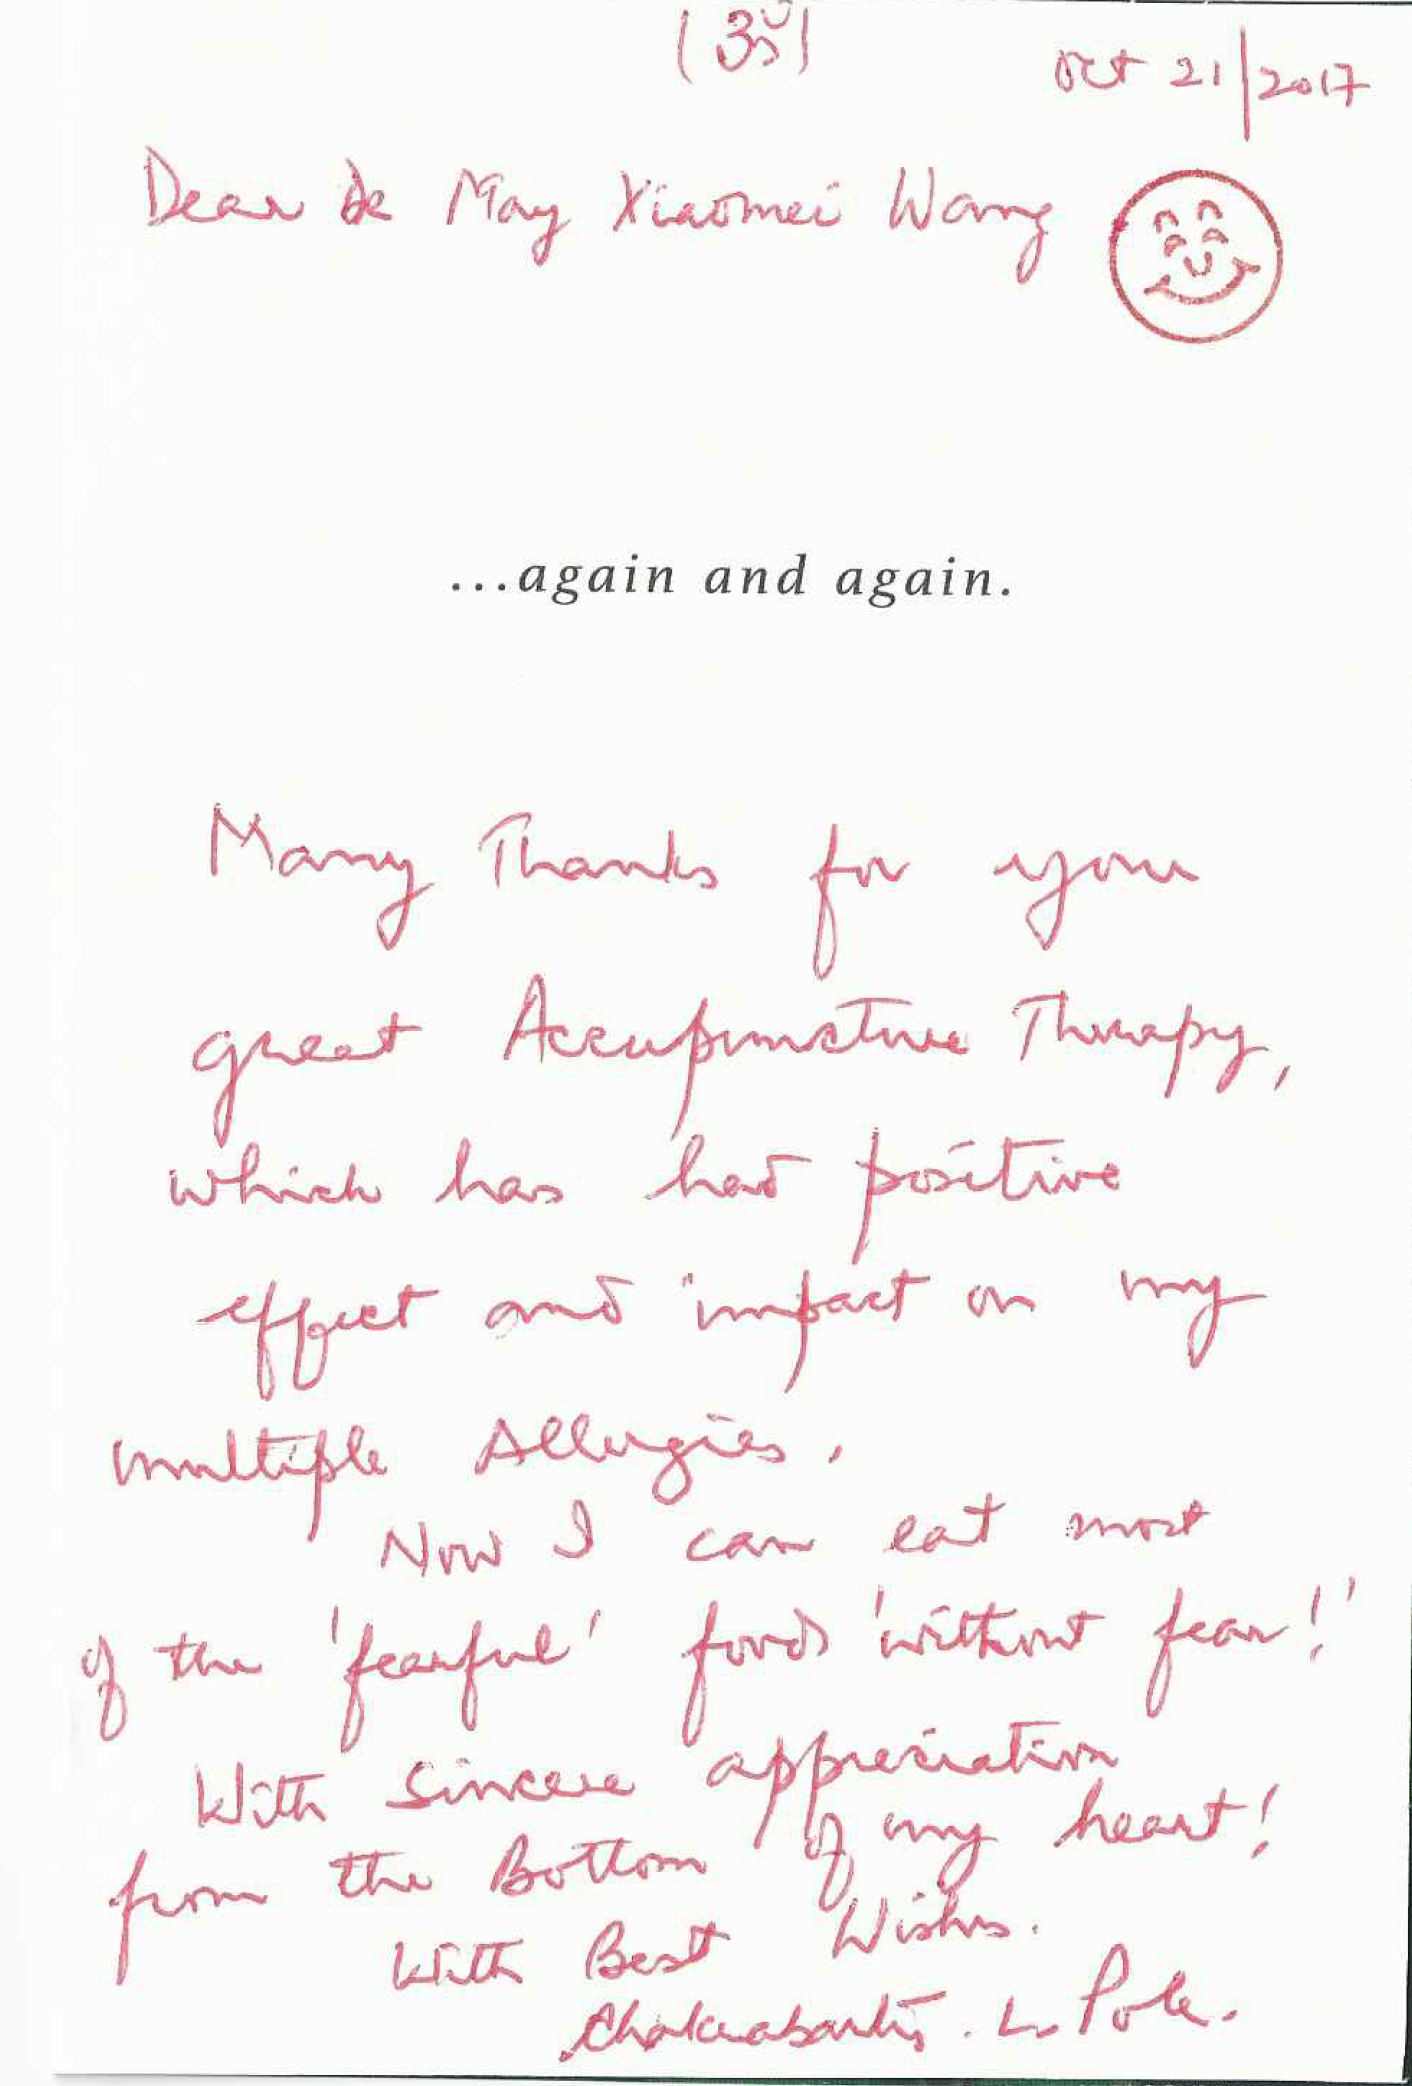 (ॐ)
Oct 21/2017
Dear Dr May Xiaomei Wang
...again and again.
Many Thanks for your
great Accupuncture Therapy,
which has had positive
effect and impact on my
multiple Allergies.
Now I can eat most
of the 'fearful' foods 'without fear!'
With Sincere appreciation
from the Bottom of my heart!
With Best Wishes.
L. Pole.